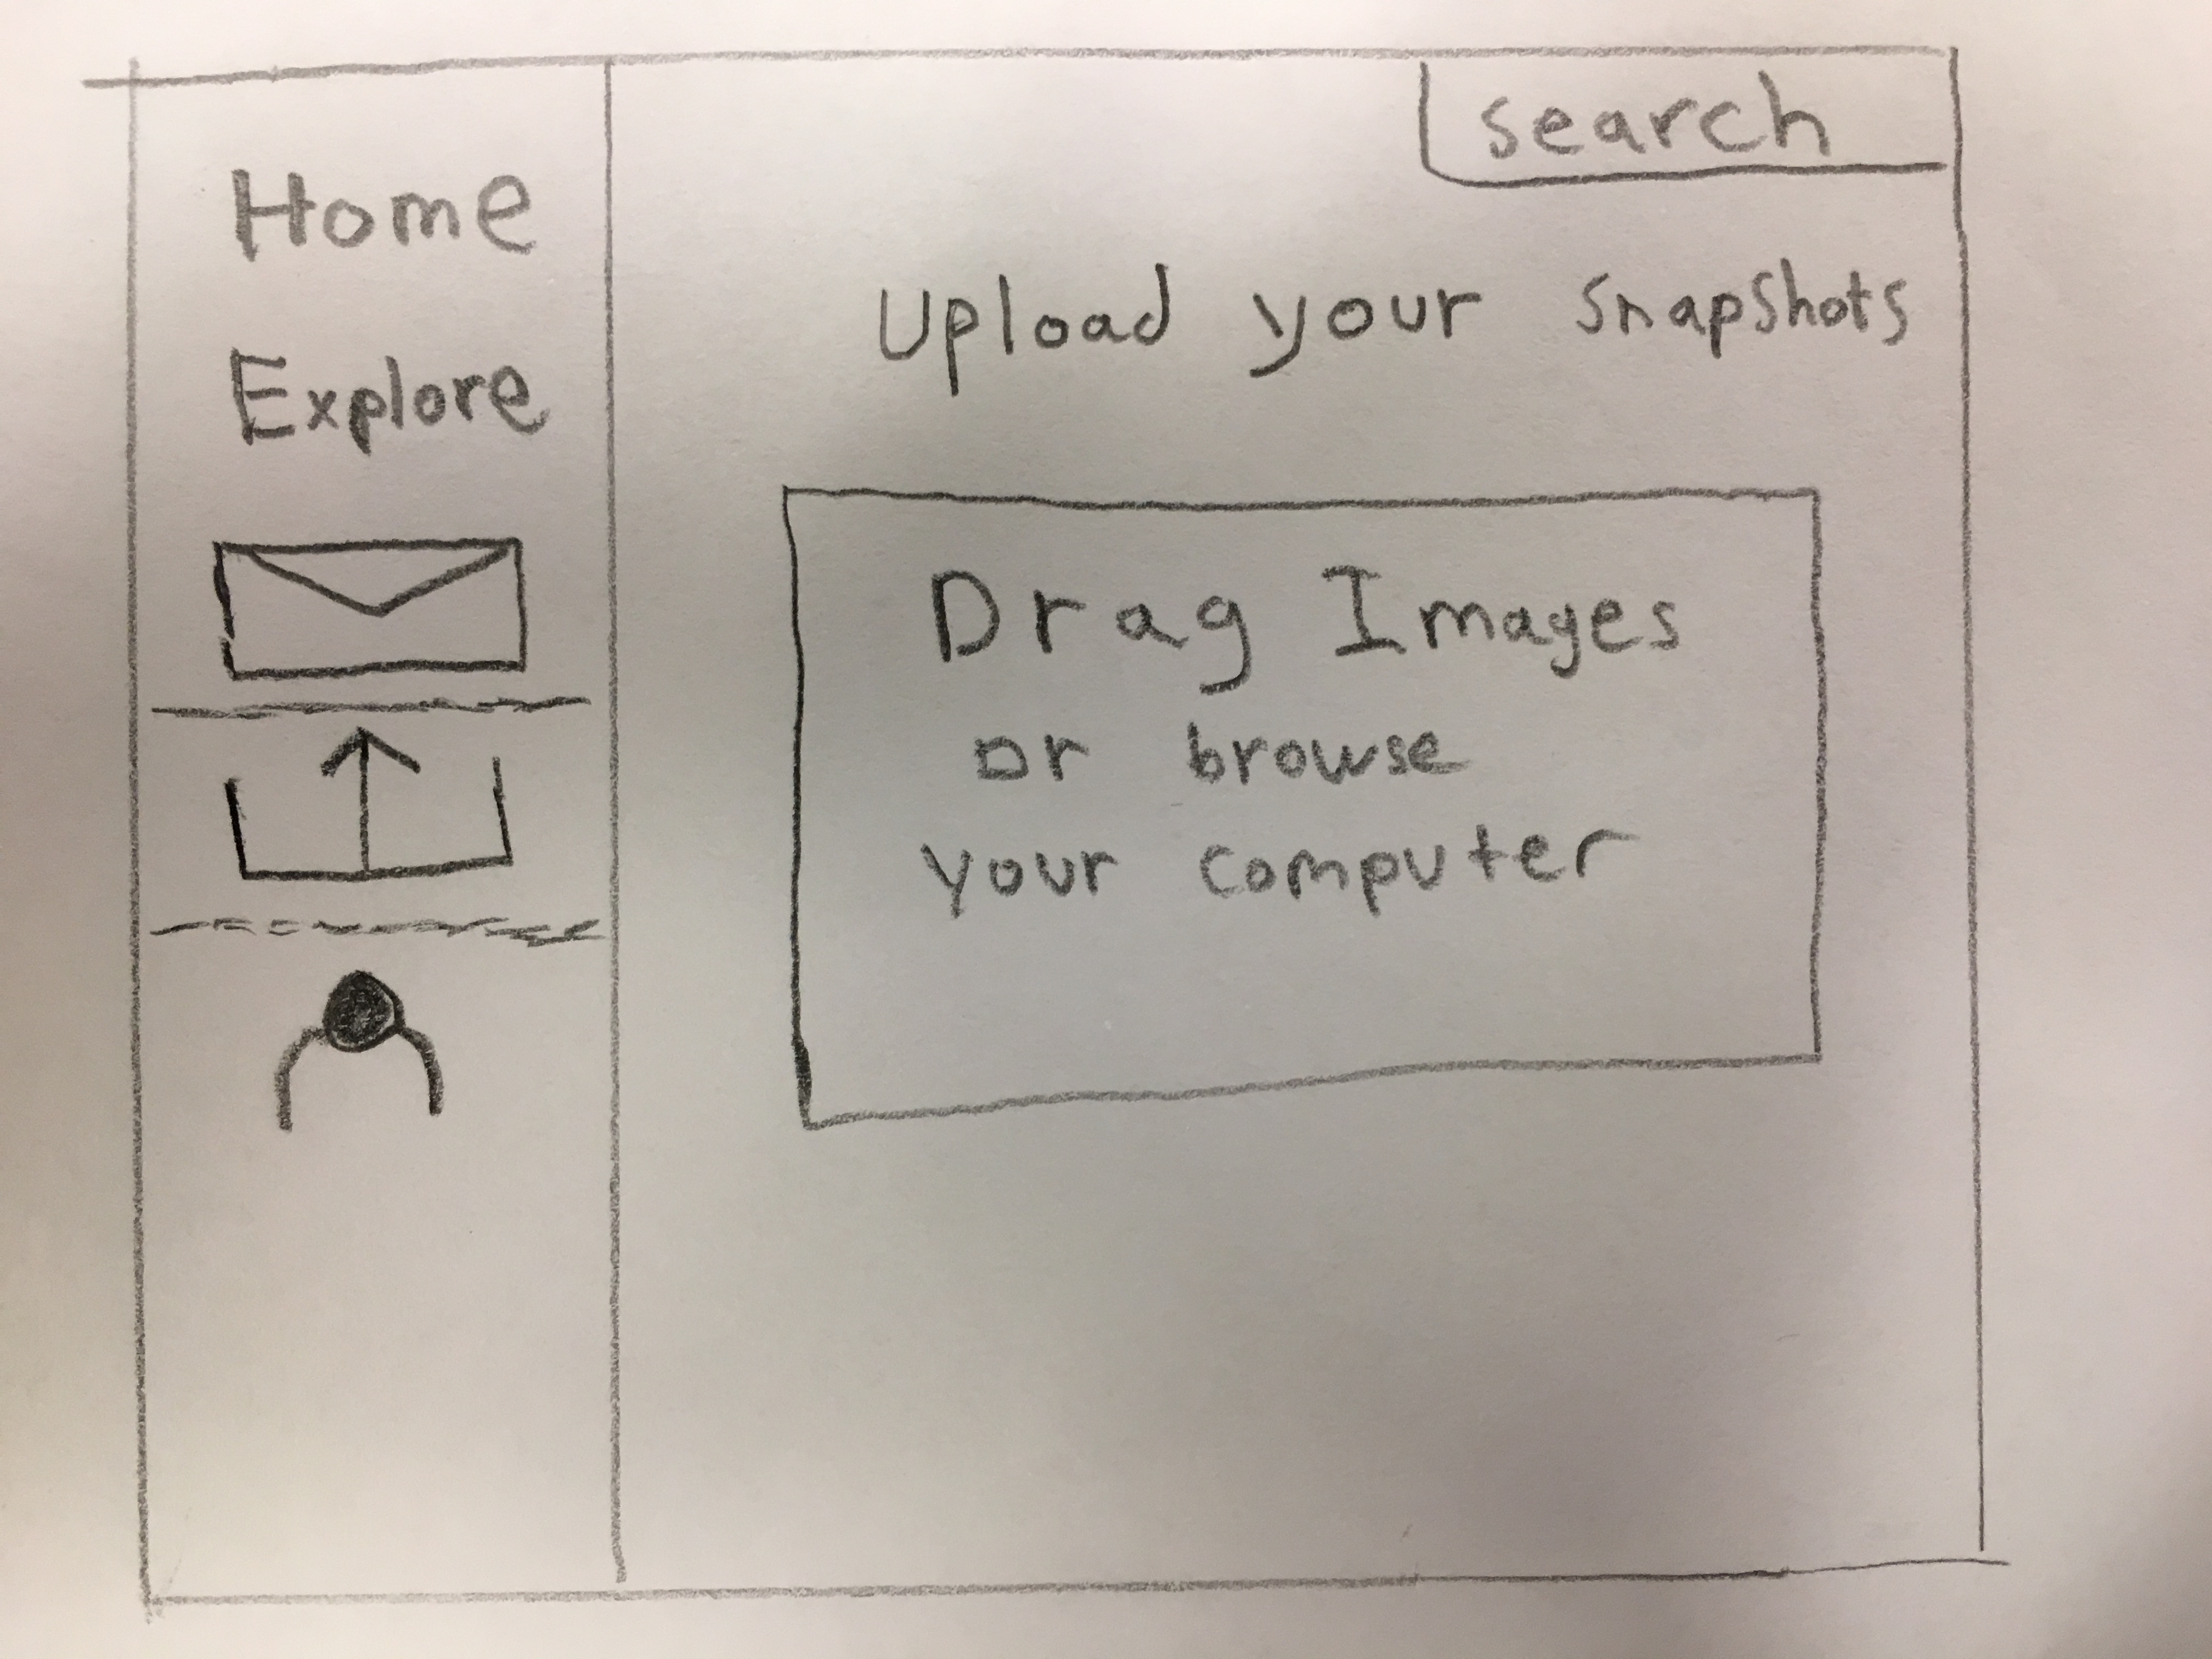 Home
Explore
search
Upload your snapshots
Drag Images
or browse
your computer